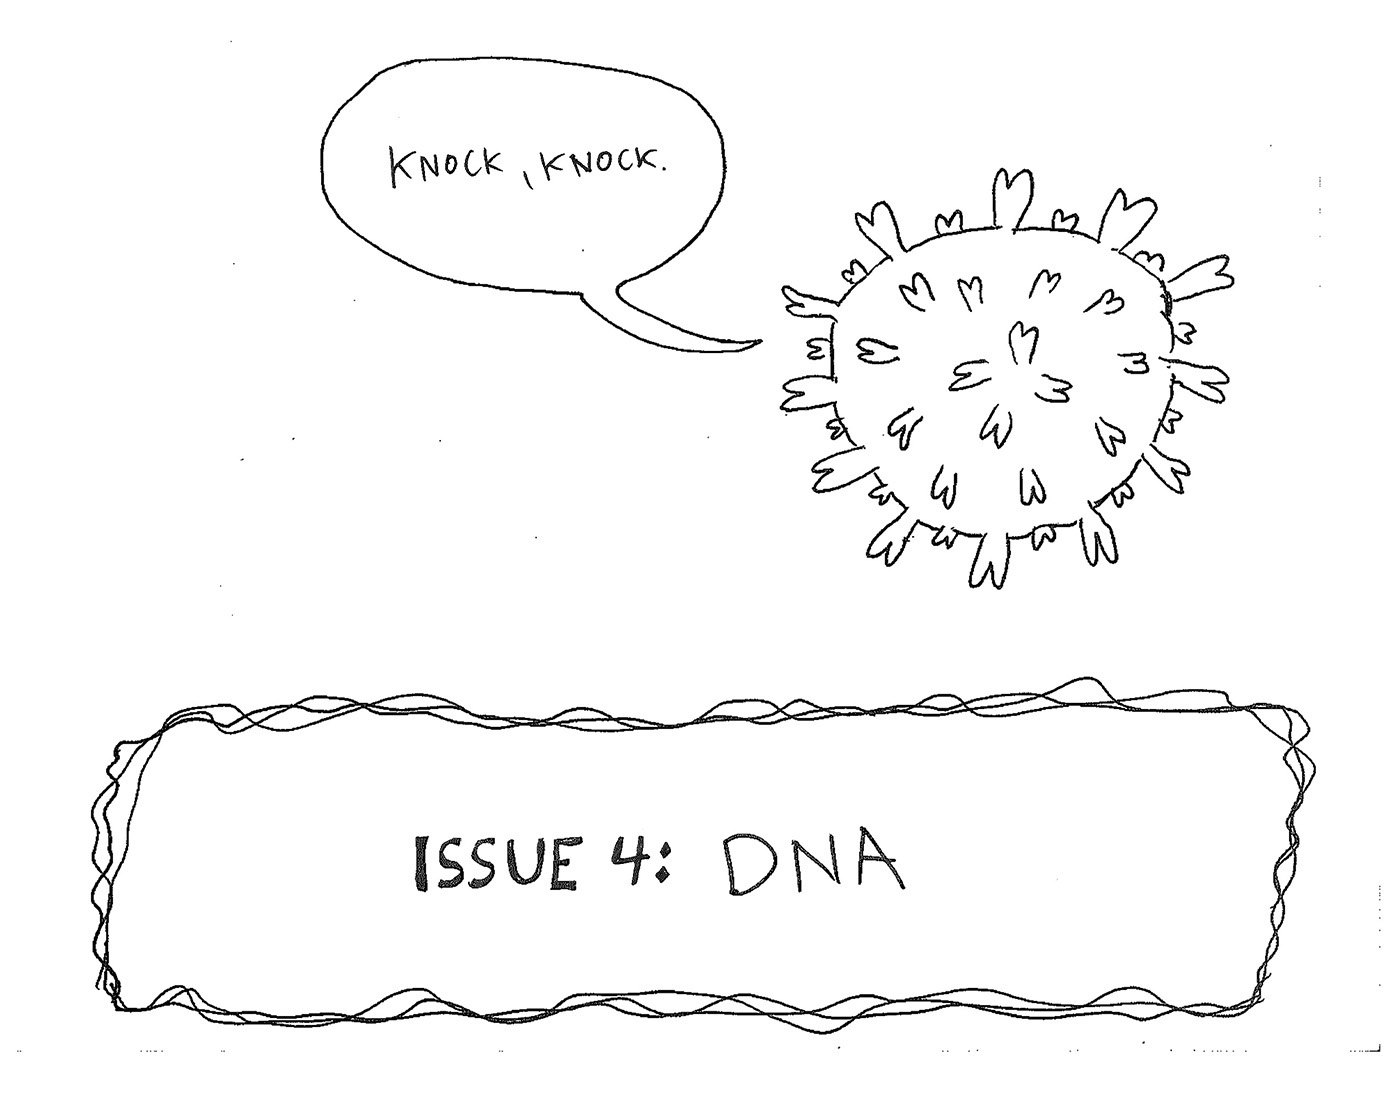 KNOCK, KNOCK.
ISSUE 4: DNA